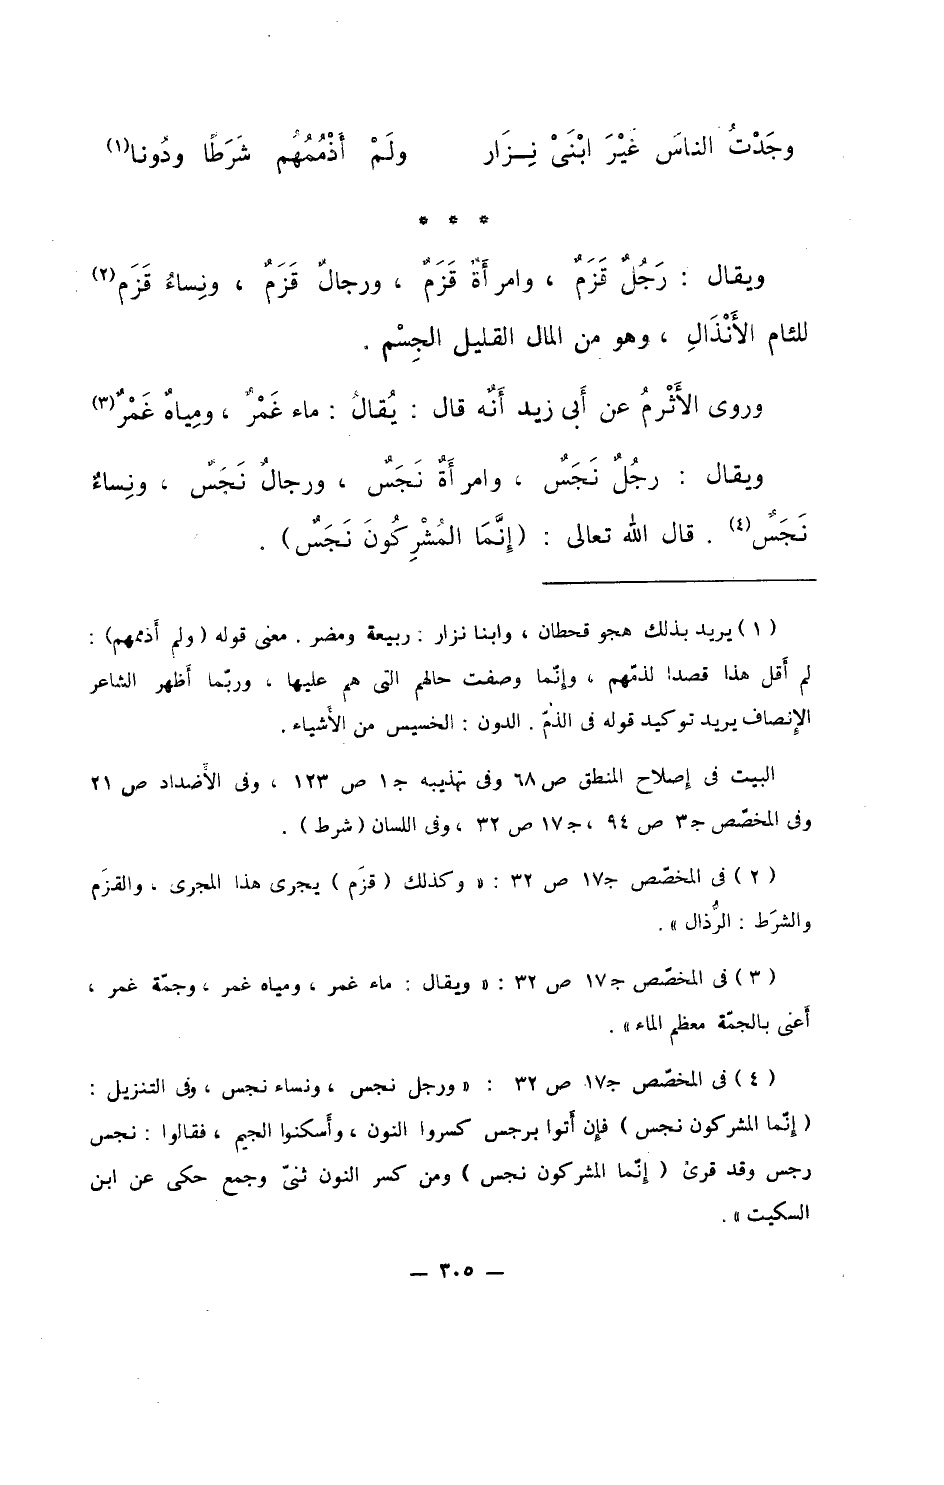 وجَدْتُ الناسَ غَيْرَ ابْنَىْ نِـزَار ولَمْ أَذْمُمْهُم شَرَطًا ودُونا(١)
* * *
ويقال : رَجُلٌ قَزَمٌ ، وامرأَةٌ قَزَمٌ ، ورجالٌ قَزَمٌ ، ونِساءُ قَزَم(٢)
للئام الأَنْذَالِ ، وهو من المال القليل الجِسْم .
وروى الأَثْرمُ عن أَبى زيد أَنَّه قال : يُقالُ : ماء غَمْرٌ ، ومِياهٌ غَمْرٌ(٣)
ويقال : رجُلٌ نَجَسٌ ، وامرأَةٌ نَجَسٌ ، ورجالٌ نَجَسٌ ، ونِساءٌ
نَجَسٌ(٤) . قال الله تعالى : (إِنَّمَا المُشْرِكُونَ نَجَسٌ) .
(١) يريد بذلك هجو قحطان ، وابنا نزار : ربيعة ومضر . معنى قوله (ولم أذممهم) :
لم أَقل هذا قصدا لذمّهم ، وإنّما وصفت حالهم التى هم عليها ، وربّما أَظهر الشاعر
الإِنصاف يريد توكيد قوله فى الذمّ . الدون : الخسيس من الأَشياء .
البيت فى إصلاح المنطق ص ٦٨ وفى تهذيبه ج١ ص ١٢٣ ، وفى الأَضداد ص ٢١
وفى المخصّص ج٣ ص ٩٤ ، ج١٧ ص ٣٢ ، وفى اللسان (شرط) .
(٢) فى المخصّص ج١٧ ص ٣٢ : « وكذلك (قزَم) يجرى هذا المجرى ، والقزَم
والشرَط : الرُّذال » .
(٣) فى المخصّص ج١٧ ص ٣٢ : « ويقال : ماء غمر ، ومياه غمر ، وجمّة غمر ،
أَعنى بالجمّة معظم الماء » .
(٤) فى المخصّص ج١٧ ص ٣٢ : « ورجل نجس ، ونساء نجس ، وفى التنزيل :
(إنّما المشركون نجس) فإِن أَتوا برجس كسروا النون ، وأَسكنوا الجيم ، فقالوا : نجس
رجس وقد قرئ (إنّما المشركون نجس) ومن كسر النون ثنىّ وجمع حكى عن ابن
السكيت » .
— ٣٠٥ —